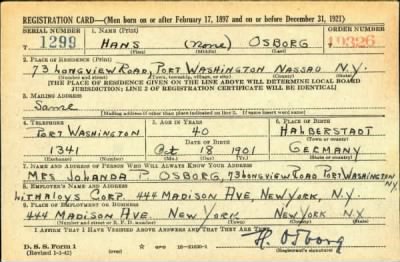 REGISTRATION CARD—(Men born on or after February 17, 1897 and on or before December 31, 1921)
SERIAL NUMBER 1. NAME (Print) ORDER NUMBER
1299 HANS (None) OSBORG 10326
(First) (Middle) (Last)
2. PLACE OF RESIDENCE (Print)
73 LONGVIEW ROAD, PORT WASHINGTON NASSAU N.Y.
(Number and street) (Town, township, village, or city) (County) (State)
[THE PLACE OF RESIDENCE GIVEN ON THE LINE ABOVE WILL DETERMINE LOCAL BOARD
JURISDICTION; LINE 2 OF REGISTRATION CERTIFICATE WILL BE IDENTICAL]
3. MAILING ADDRESS
Same
[Mailing address if other than place indicated on line 2. If same insert word same]
4. TELEPHONE 5. AGE IN YEARS 6. PLACE OF BIRTH
PORT WASHINGTON 40 HALBERSTADT
DATE OF BIRTH (Town or county)
1341 Oct 18 1901 GERMANY
(Exchange) (Number) (Mo.) (Day) (Yr.) (State or country)
7. NAME AND ADDRESS OF PERSON WHO WILL ALWAYS KNOW YOUR ADDRESS
MRS JOLANDA P. OSBORG, 73 LONGVIEW ROAD PORT WASHINGTON N.Y.
8. EMPLOYER'S NAME AND ADDRESS
LITHALOYS CORP. 444 MADISON AVE, NEW YORK, N.Y.
9. PLACE OF EMPLOYMENT OR BUSINESS
444 MADISON AVE. NEW YORK NEW YORK N.Y.
(Number and street or R. F. D. number) (Town) (County) (State)
I AFFIRM THAT I HAVE VERIFIED ABOVE ANSWERS AND THAT THEY ARE TRUE.
H. Osborg
D. S. S. Form 1 (over) GPO 16—21630-1 (Registrant's signature)
(Revised 1-1-42)